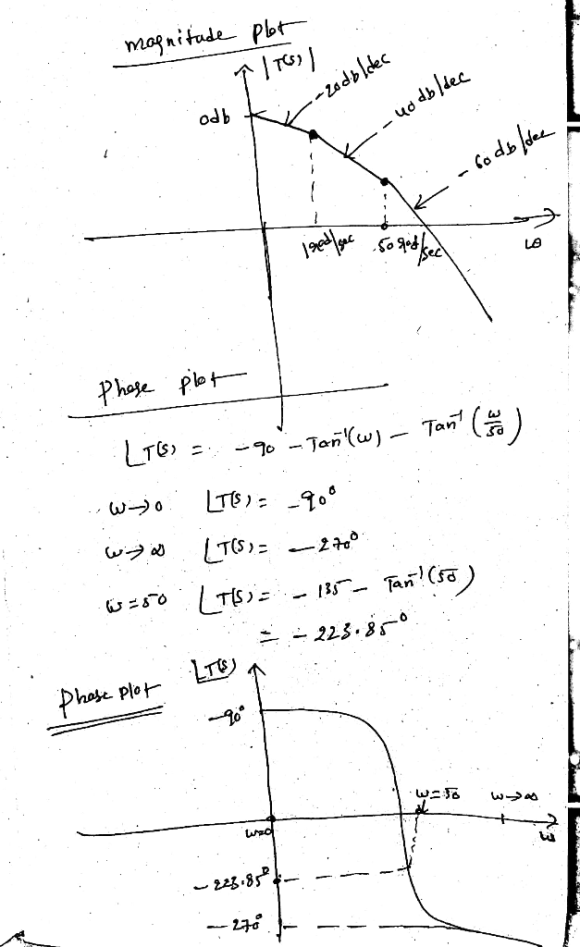 magnitude plot
|T(s)|
-20db/dec
0db
-40db/dec
-60db/dec
1rad/sec
50rad/sec
ω
Phase plot
∠T(s) = -90 - Tan⁻¹(ω) - Tan⁻¹(ω/50)
ω→0 ∠T(s) = -90°
ω→∞ ∠T(s) = -270°
ω=50 ∠T(s) = -135 - Tan⁻¹(50)
= -223.85°
Phase plot
∠T(s)
-90°
ω=50
ω→∞
ω=0
ω
-223.85°
-270°